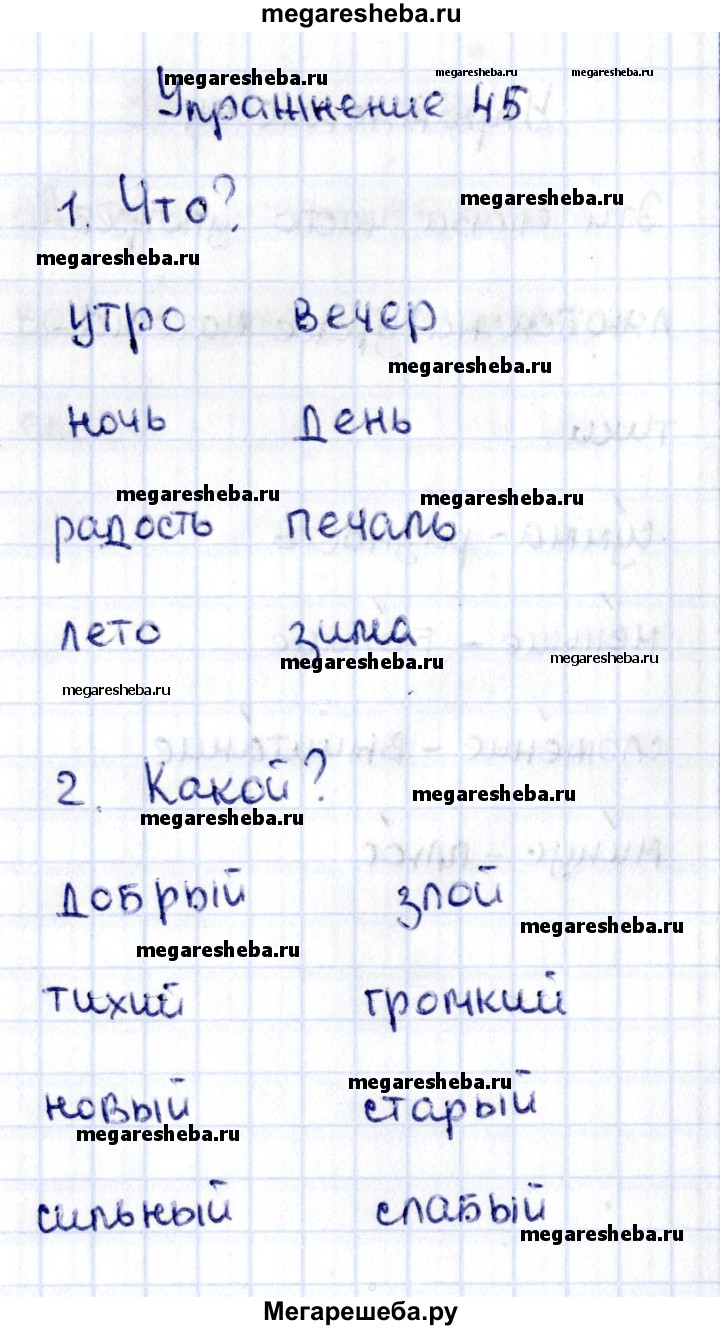 megaresheba.ru
megaresheba.ru megaresheba.ru megaresheba.ru
Упражнение 45
1. Что?
megaresheba.ru
megaresheba.ru
утро вечер
megaresheba.ru
ночь день
megaresheba.ru megaresheba.ru
радость печаль
лето зима
megaresheba.ru megaresheba.ru
megaresheba.ru
2. Какой?
megaresheba.ru
megaresheba.ru
добрый злой
megaresheba.ru
megaresheba.ru
тихий громкий
megaresheba.ru
новый старый
megaresheba.ru
сильный слабый
megaresheba.ru
Мегарешеба.ру